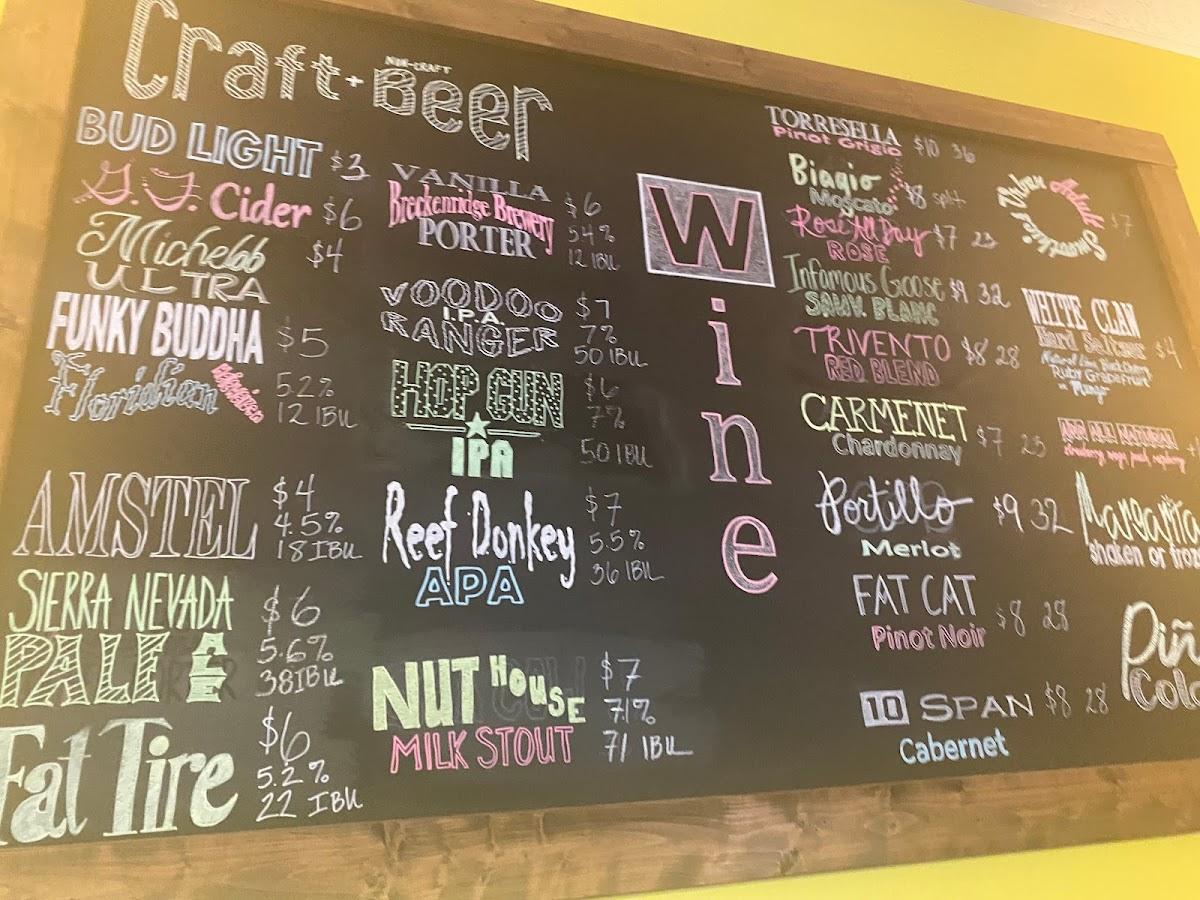 Craft + NON-CRAFT Beer
BUD LIGHT $3
G.F. Cider $6
Michelob $4
ULTRA
FUNKY BUDDHA $5
Floridian
5.2%
12 IBU
AMSTEL $4
4.5%
18 IBU
SIERRA NEVADA $6
PALE ALE 5.6%
38 IBU
Fat Tire $6
5.2%
22 IBU
VANILLA $6
Breckenridge Brewery 5.4%
PORTER 12 IBU
VOODOO $7
I.P.A. 7%
RANGER 50 IBU
HOP GUN $6
7%
IPA 50 IBU
Reef Donkey $7
5.5%
APA 36 IBU
NUT HOUSE $7
7.1%
MILK STOUT 71 IBU
Wine
TORRESELLA
Pinot Grigio $10 36
Biagio $8 split
Moscato
Rosé All Day $7 25
ROSE
Infamous Goose $9 32
SAUV. BLANC
TRIVENTO $8 28
RED BLEND
CARMENET $7 25
Chardonnay
Portillo $9 32
Merlot
FAT CAT $8 28
Pinot Noir
10 SPAN $8 28
Cabernet
Urban
Smoothies $7
WHITE CLAW
Hard Seltzer $4
Natural Lime Black Cherry
Ruby Grapefruit
or Mango
ADD ALL NATURAL
strawberry, mango, peach, raspberry
Margarita
shaken or froz
Piñ
Cola